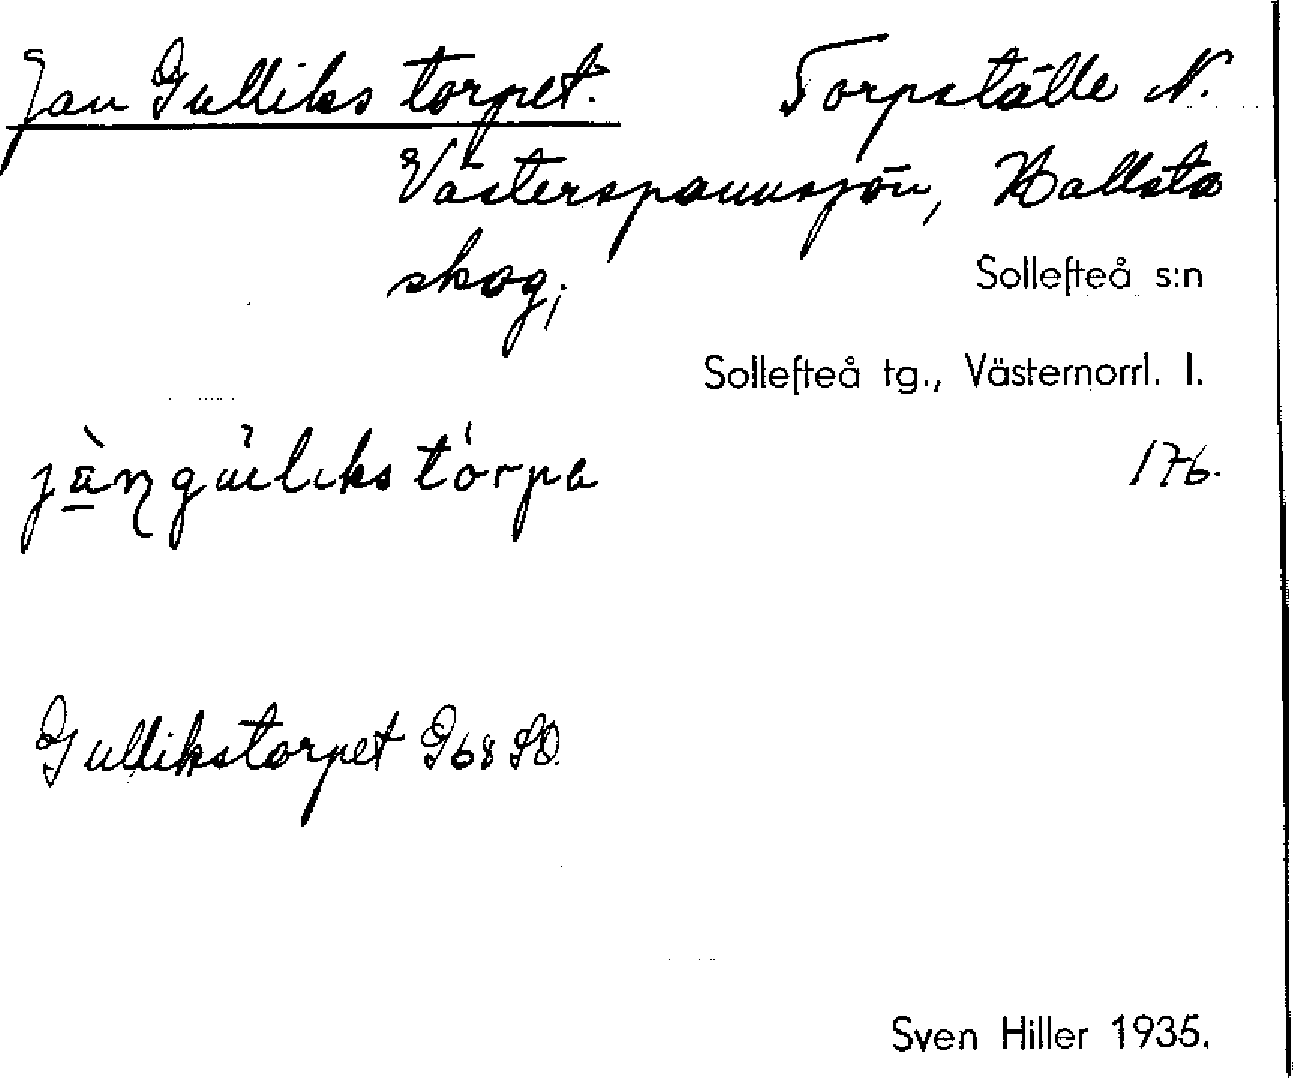 Jan Gulliks torpet. Torpställe N.
Västerspannsjön, Hallsta
skog,
Sollefteå s:n
Sollefteå tg., Västernorrl. l.
176.
Gullikstorpet G68 SO
Sven Hiller 1935.